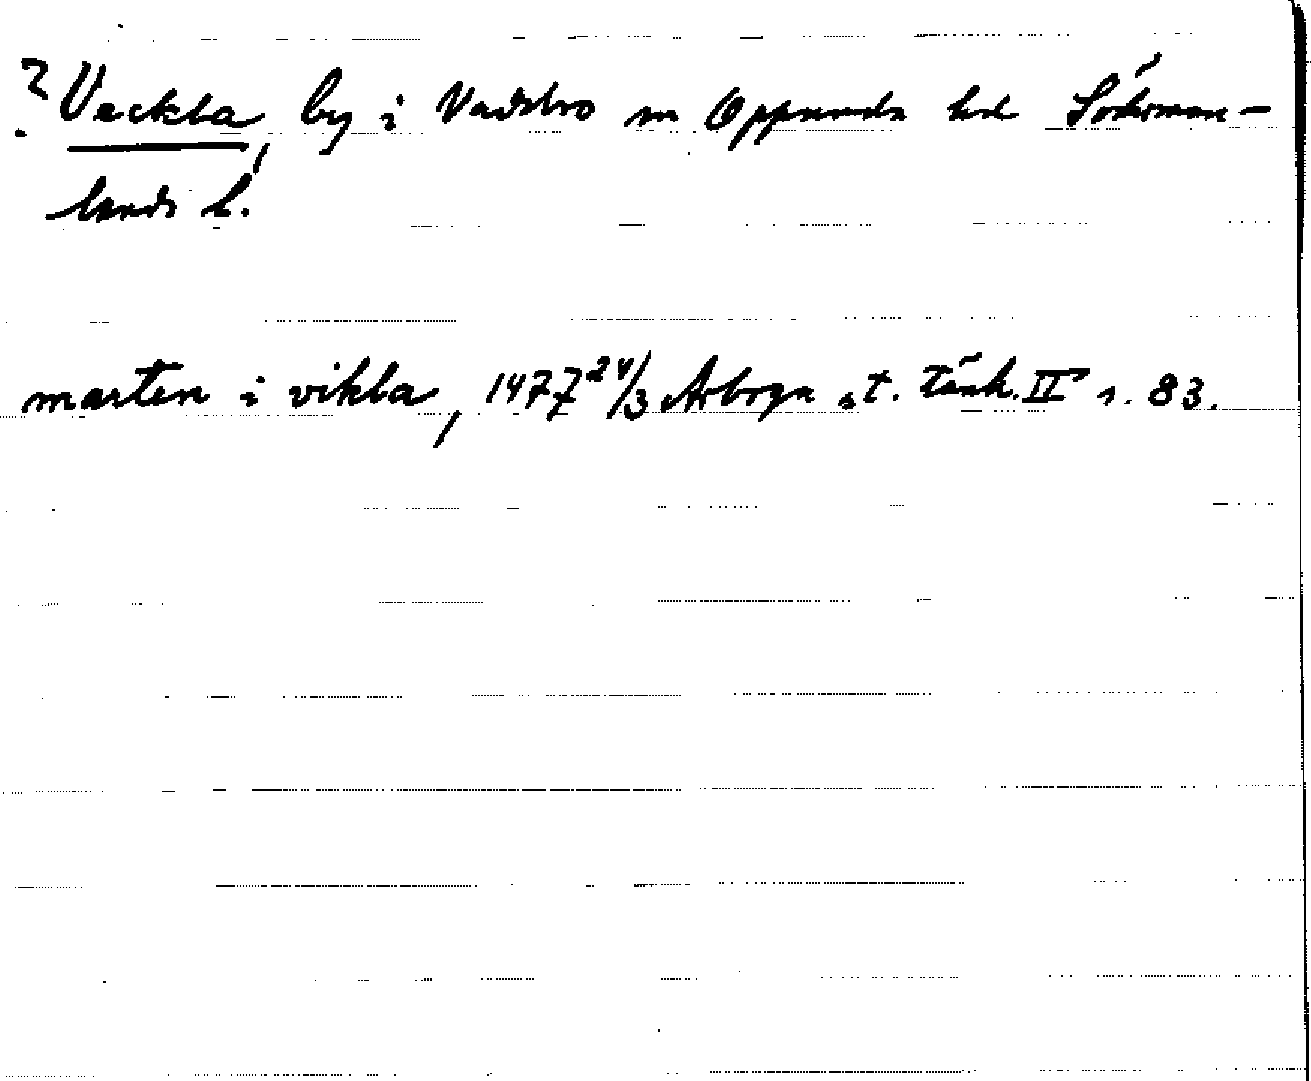 ? Veckla, by i Vadsbro sn Oppunda hd Söderman-
lands l.
marten i vikla, 1477 24/3 Arboga st. tänk. II s. 83.